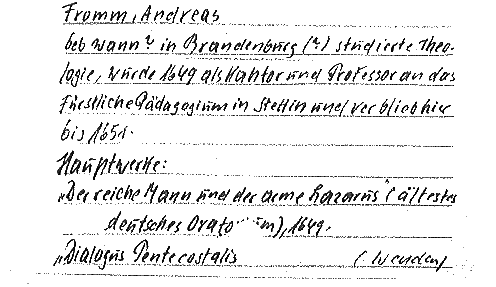 Fromm, Andreas
geb wann? in Brandenburg (?) studierte Theo-
logie, wurde 1649 als Kantor und Professor an das
Fürstliche Pädagogium in Stettin und verblieb hier
bis 1651.
Hauptwerke:
„Der reiche Mann und der arme Lazarus" (ältestes
deutsches Orato m), 1649.
„Dialogus Pentecostalis (wenden)